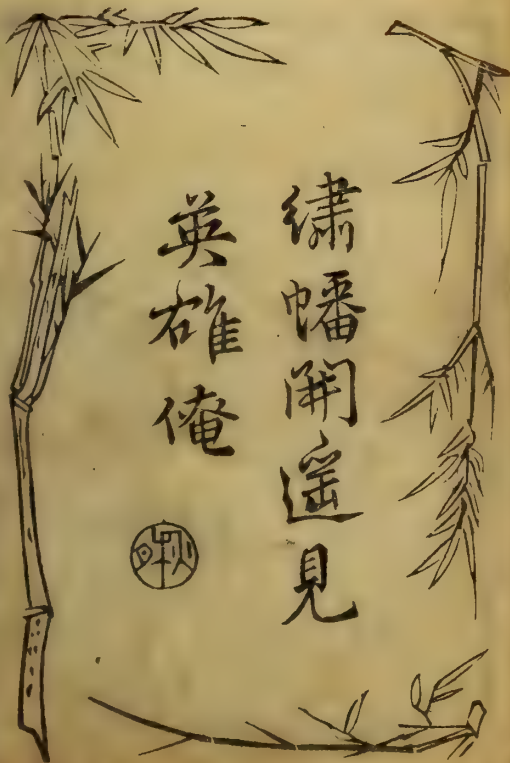 繡幡開遥見
英雄俺